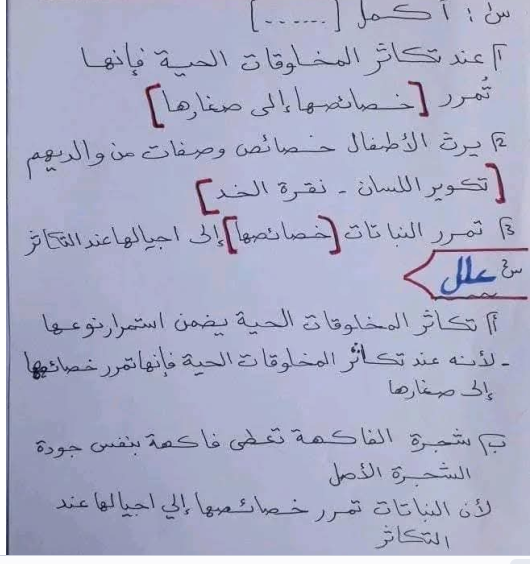 س١: أكمل [......]
١) عند تكاثر المخلوقات الحية فإنها
تُمرر [خصائصها إلى صغارها]
٢) يرث الأطفال خصائص وصفات من والديهم
[تكوير اللسان - نقرة الخد]
٣) تمرر النباتات [خصائصها] إلى اجيالها عند التكاثر
س٢ علل
أ) تكاثر المخلوقات الحية يضمن استمرار نوعها
- لأنه عند تكاثر المخلوقات الحية فإنها تمرر خصائصها
إلى صغارها
ب) شجرة الفاكهة تعطى فاكهة بنفس جودة
الشجرة الأصل
لأن النباتات تمرر خصائصها إلي اجيالها عند
التكاثر